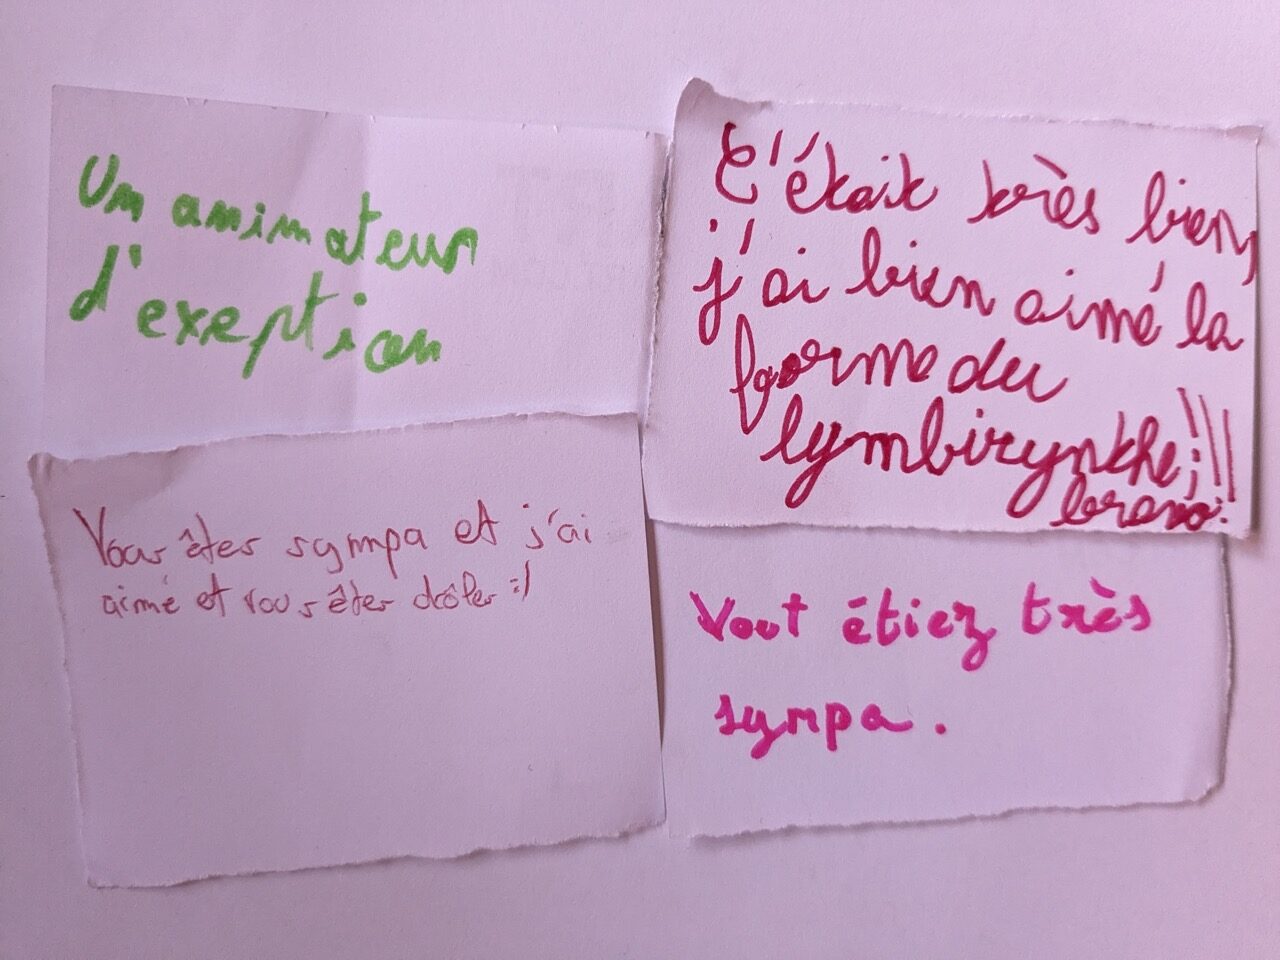 Un animateur
d'exeption
C'était très bien,
j'ai bien aimé la
forme du
lymbirynthe, !!!
bravo.
Vous êtes sympa et j'ai
aimé et vous êtes drôles :)
Vout étiez très
sympa.